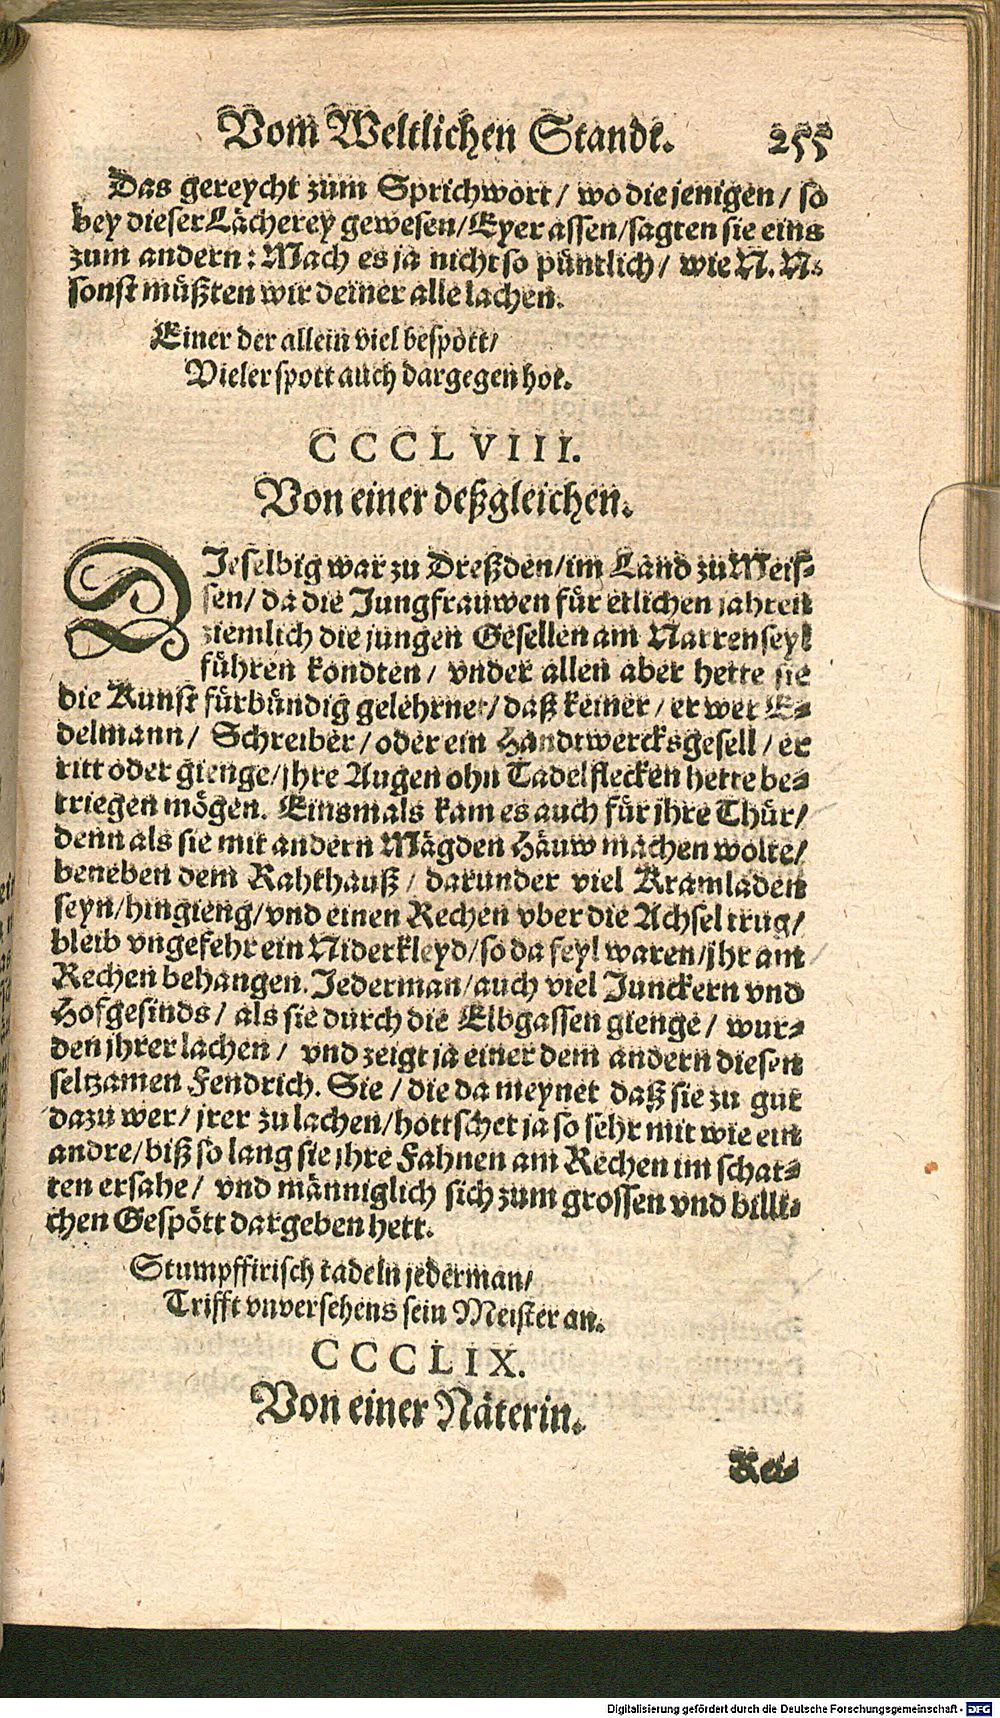 Vom Weltlichen Standt. 255
Das gereycht zum Sprichwort / wo die jenigen / so
bey dieser Lächerey gewesen / Eyer assen / sagten sie eins
zum andern: Mach es ja nicht so püntlich / wie N. N.
sonst müßten wir deiner alle lachen.
Einer der allein viel bespott /
Vieler spott auch dargegen hot.
CCCLVIII.
Von einer deßgleichen.
DJeselbig war zu Dreßden / im Land zu Meis-
sen / da die Jungfrauwen für etlichen jahren
ziemlich die jungen Gesellen am Narrenseyl
führen kondten / vnder allen aber hette sie
die Kunst fürbündig gelehrnet / daß keiner / er wer E-
delmann / Schreiber / oder ein Handtwercksgesell / er
ritt oder gienge / jhre Augen ohn Tadelflecken hette be-
triegen mögen. Einsmals kam es auch für jhre Thür /
denn als sie mit andern Mägden Häuw machen wolte /
beneben dem Rahthauß / darunder viel Kramladen
seyn / hingieng / vnd einen Rechen vber die Achsel trug /
bleib vngefehr ein Niderkleyd / so da feyl waren / jhr am
Rechen behangen. Jederman / auch viel Junckern vnd
Hofgesinds / als sie durch die Elbgassen gienge / wur-
den jhrer lachen / vnd zeigt ja einer dem andern diesen
seltzamen Fendrich. Sie / die da meynet daß sie zu gut
dazu wer / jrer zu lachen / hottschet ja so sehr mit wie ein
andre / biß so lang sie jhre Fahnen am Rechen im schat-
ten ersahe / vnd männiglich sich zum grossen vnd billi-
chen Gespött dargeben hett.
Stumpffirisch tadeln jederman /
Trifft vnversehens sein Meister an.
CCCLIX.
Von einer Näterin.
Rei-
Digitalisierung gefördert durch die Deutsche Forschungsgemeinschaft - DFG